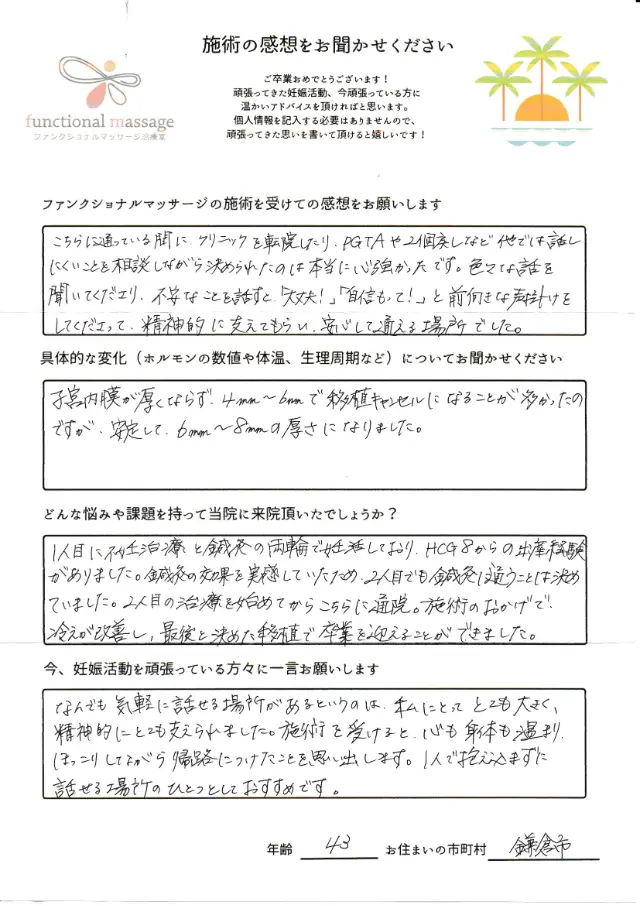 施術の感想をお聞かせください
functional massage
ファンクショナルマッサージ治療室
ご卒業おめでとうございます！
頑張ってきた妊娠活動、今頑張っている方に
温かいアドバイスを頂ければと思います。
個人情報を記入する必要はありませんので、
頑張ってきた思いを書いて頂けると嬉しいです！
ファンクショナルマッサージの施術を受けての感想をお願いします
こちらに通っている間に、クリニックを転院したり、PGTAや2個戻しなど他では話し
にくいことを相談しながら決められたのは本当に心強かったです。色々な話を
聞いてくださり、不安なことを話すと「大丈夫！」「自信もって！」と前向きな声掛けを
してくださって、精神的に支えてもらい、安心して通える場所でした。
具体的な変化（ホルモンの数値や体温、生理周期など）についてお聞かせください
子宮内膜が厚くならず、4mm〜6mmで移植キャンセルになることが多かったの
ですが、安定して、6mm〜8mmの厚さになりました。
どんな悩みや課題を持って当院に来院頂いたでしょうか？
1人目に不妊治療と鍼灸の両輪で妊活しており、HCG8からの出産経験
がありました。鍼灸の効果を実感していたため、2人目でも鍼灸は通うことは決め
ていました。2人目の治療を始めてからこちらに通院。施術のおかげで
冷えが改善し、最後と決めた移植で卒業を迎えることができました。
今、妊娠活動を頑張っている方々に一言お願いします
なんでも気軽に話せる場所があるというのは、私にとってとても大きく、
精神的にとても支えられました。施術を受けると、心も身体も温まり、
ほっこりしながら帰路につけたことを思い出します。1人で抱え込まずに
話せる場所のひとつとしておすすめです。
年齢 43 お住まいの市町村 鎌倉市